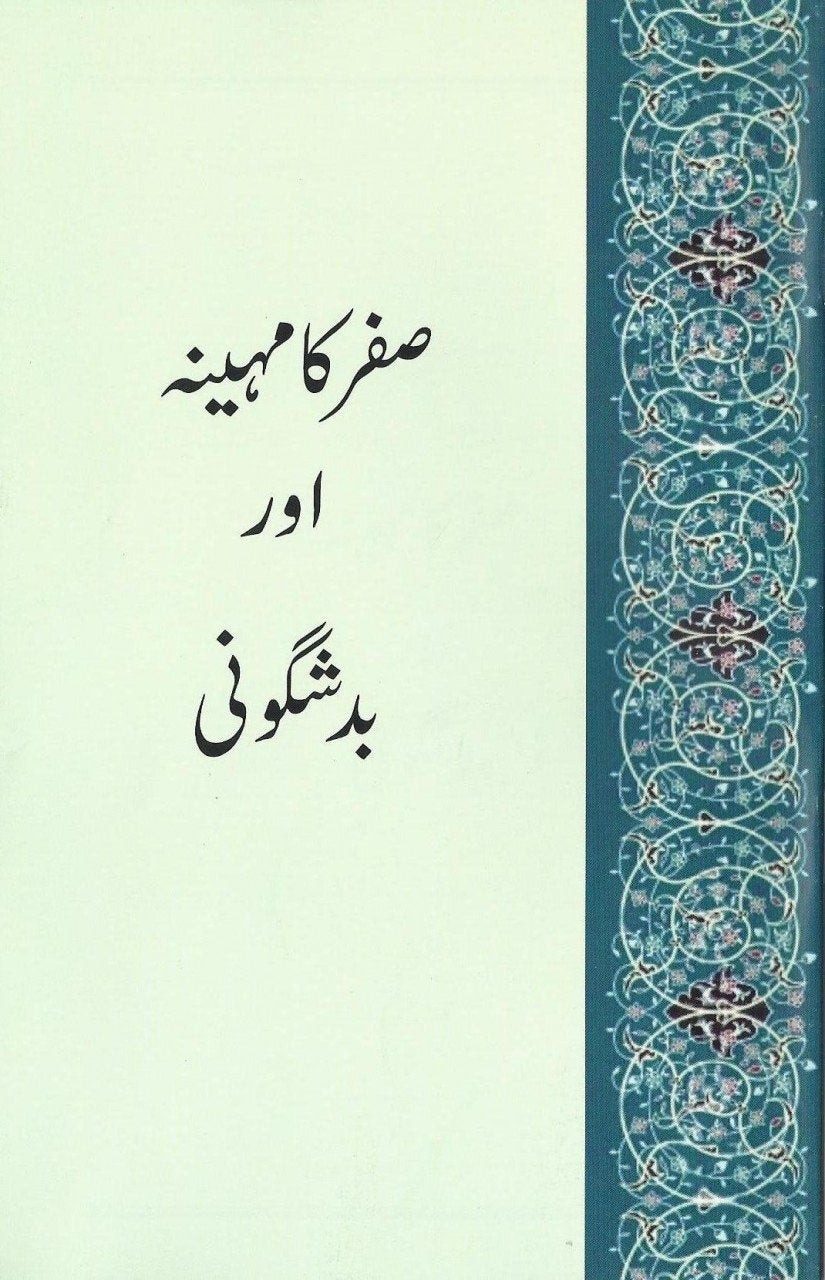 صفر کا مہینہ
اور
بدشگونی